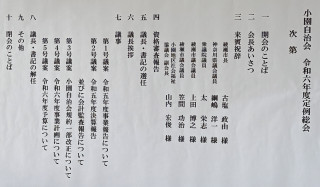 小園自治会 令和六年度定例総会
次第
一 開会のことば
二 会長あいさつ
三 来賓祝辞
綾瀬市長 古塩 政由 様
神奈川県議会議員 綱嶋 洋一 様
衆議院議員 太 栄志 様
綾瀬市議会議員 上田 博之 様
綾瀬市議会議員 笠間 功治 様
山内 宏優 様
四 資格審査報告
五 議長・書記の選任
六 議長挨拶
七 議事
第1号議案 令和五年度事業報告について
第2号議案 令和五年度決算報告
並びに会計監査報告について
第3号議案 小園自治会規約一部改正について
第4号議案 令和六年度事業計画について
第5号議案 令和六年度予算について
八 議長・書記の解任
九 その他
十 閉会のことば